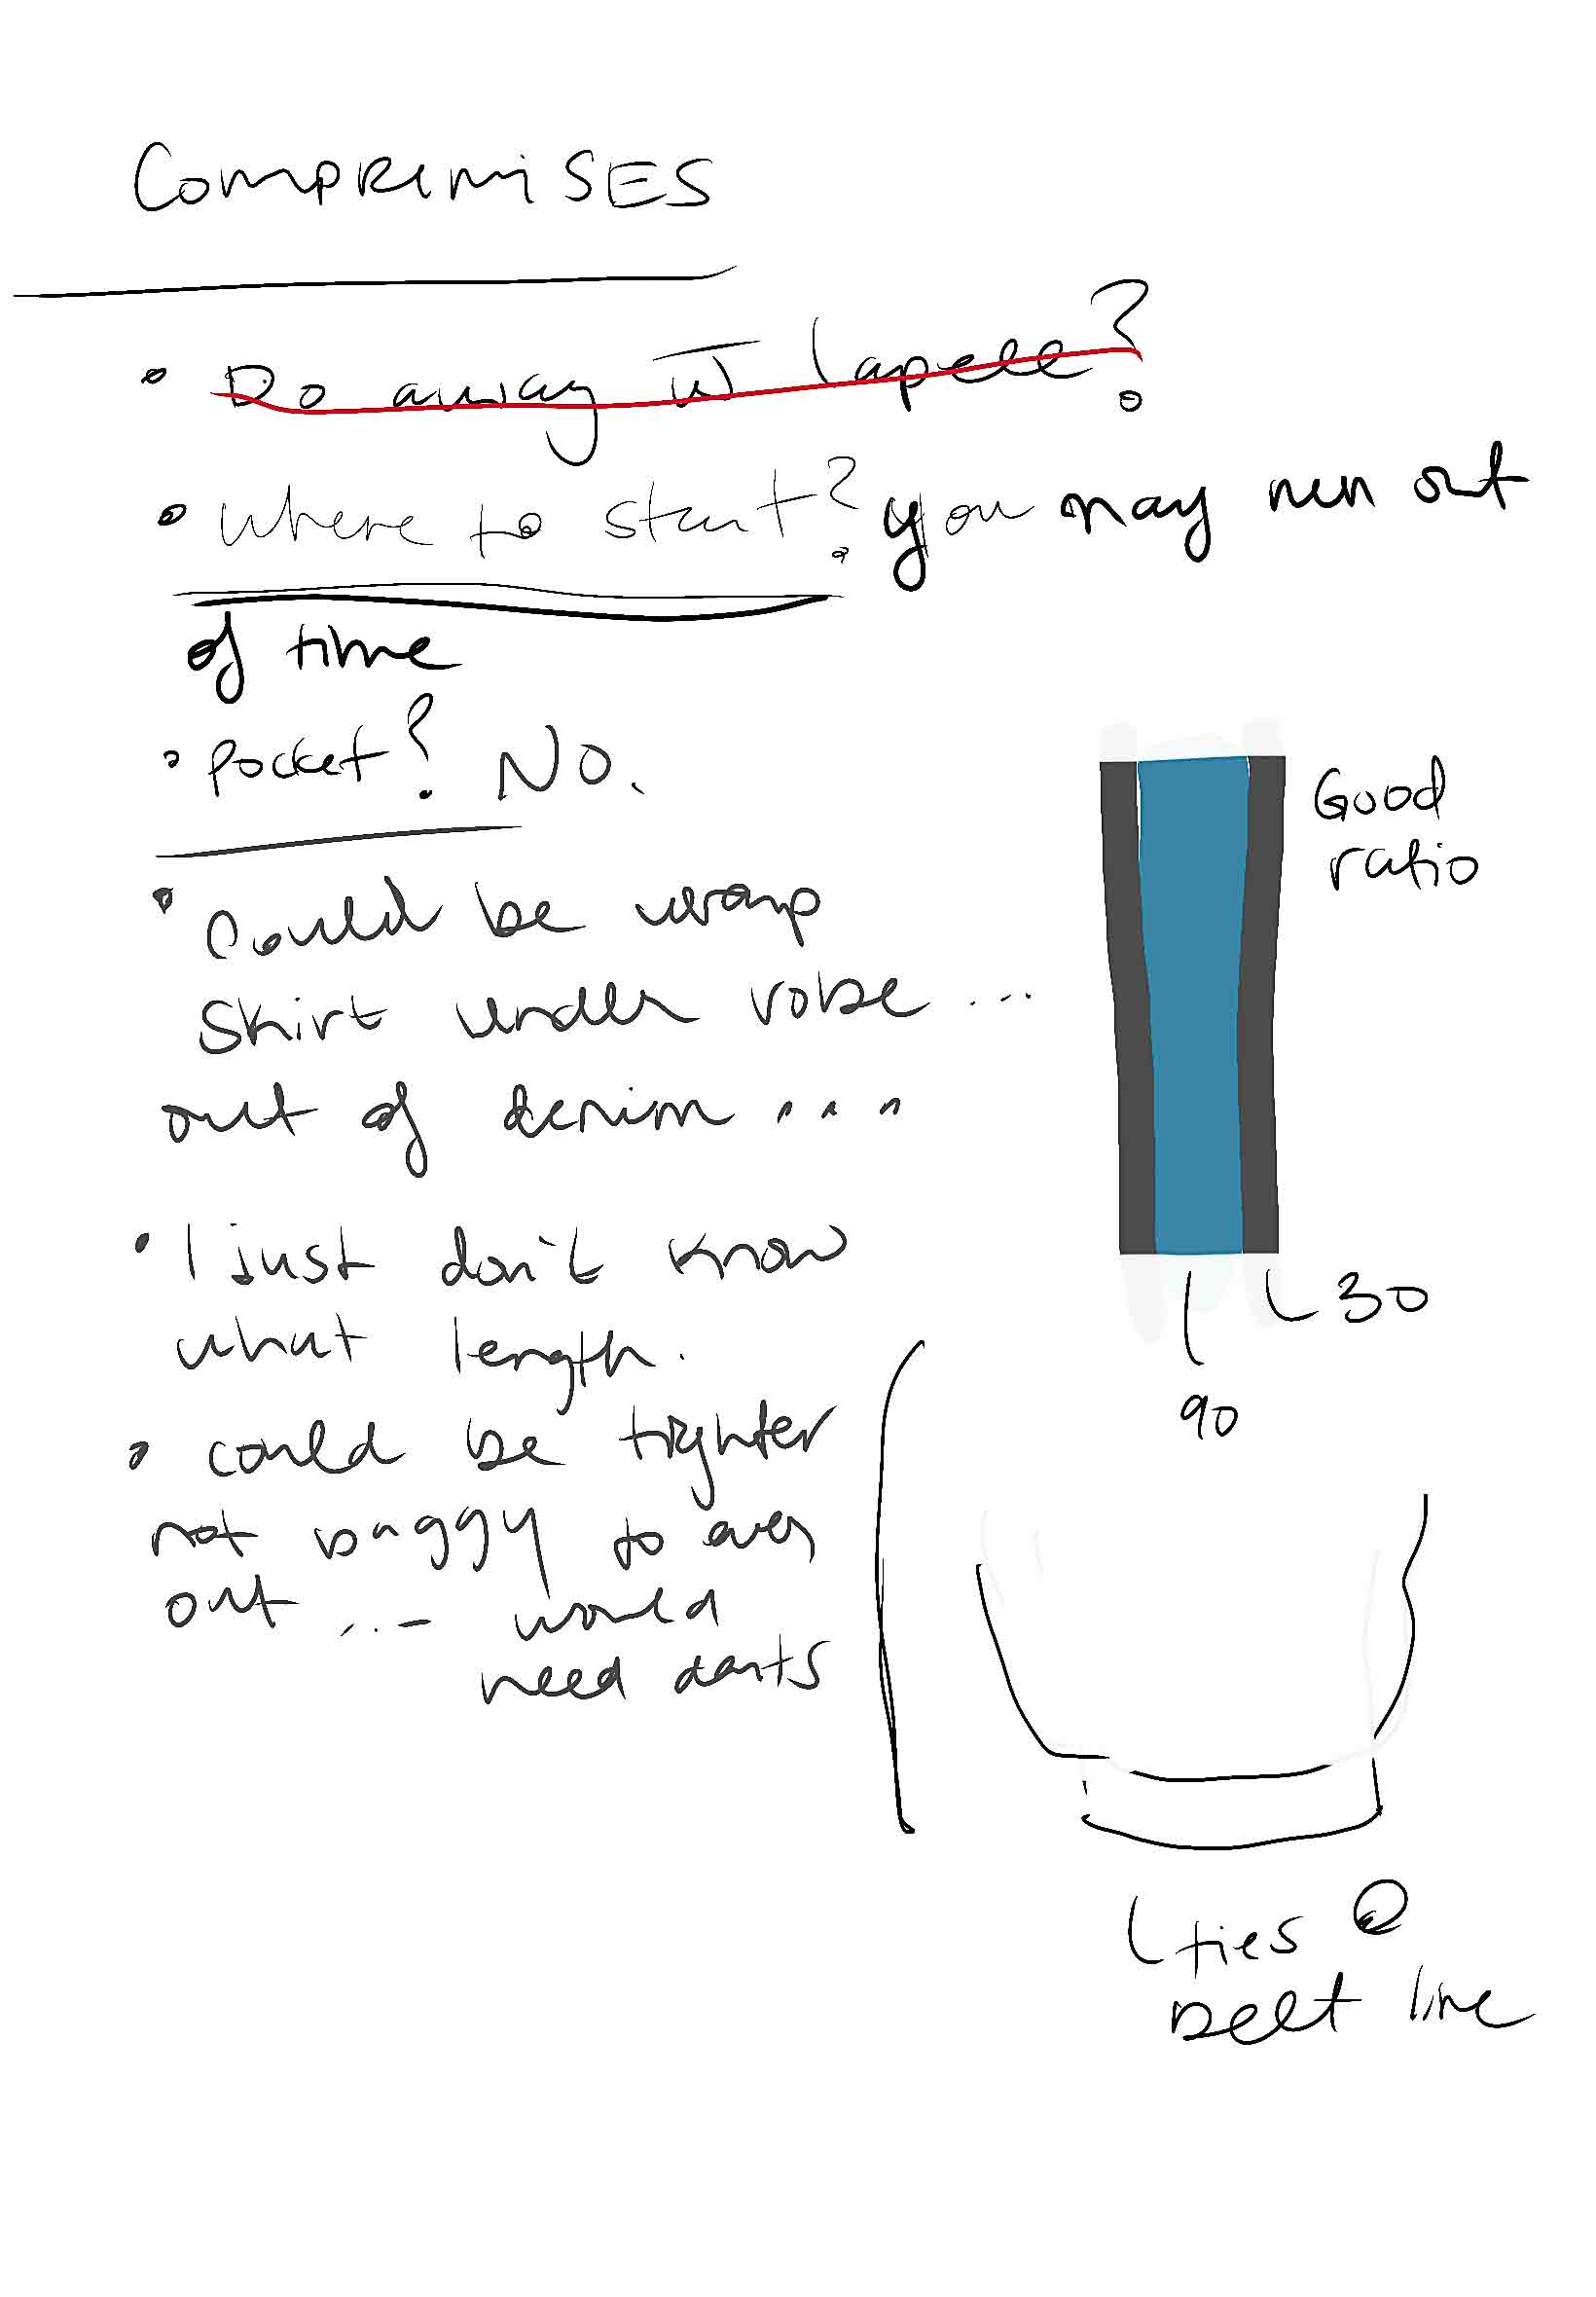 COMPREMISES
• Do away w̄ lapell?
• where to start? you may run out
of time
• Pocket? NO.
• Could be wrap
skirt under robe ...
out of denim ...
• I just don't know
what length.
• could be tighter
not baggy to even
out ... would
need darts
Good
ratio
30
90
ties @
belt line